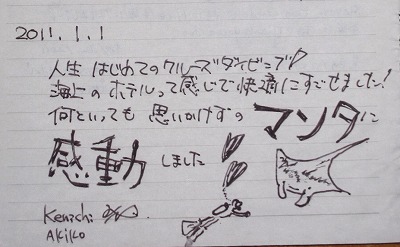 2011.1.1
人生はじめてのクルーズダイビング♪
海上のホテルって感じで快適にすごせました!
何といっても思いかけずのマンタに
感動しました
Kenichi
Akiko